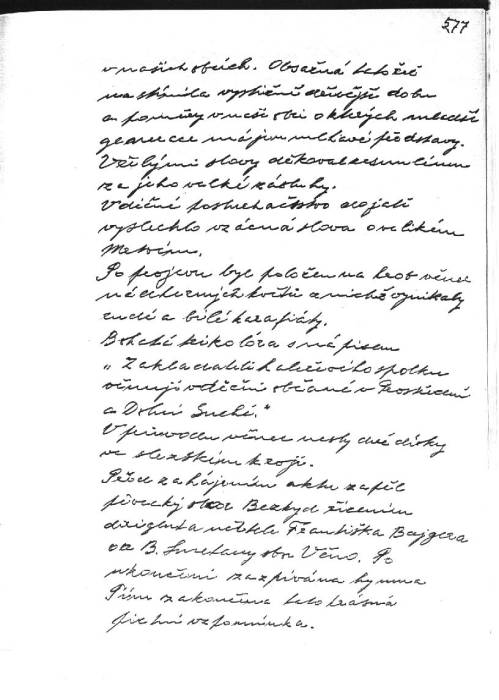 577
v našich obcích. Obsažná tato řeč
nastínila výstižně dřívější dobu
a poměry v naší obci o kterých mladší
generace má jen mlhavé představy.
Vřelými slovy děkoval
za jeho velké zásluhy.
Vděčné posluchačstvo dojatě
vyslechlo vzácná slova o velikém
Po projevu byl položen na hrob věnec
nádherných květů z nichž vynikaly
rudé a bílé karafiáty.
Bohatá trikolóra s nápisem
„Zakladateli spolku
věnují vděční občané v Prostřední
a Dolní Suché."
V průvodu věnec nesly dvě dívky
ve slezském kroji.
Před zahájením aktu zapěl
pěvecký sbor Bezkyd řízením
dirigenta učitele Františka Bajgera
od B. Smetany sbor Věno. Po
ukončení zazpívána hymna
Písní zakončena tato krásná
pietní vzpomínka.